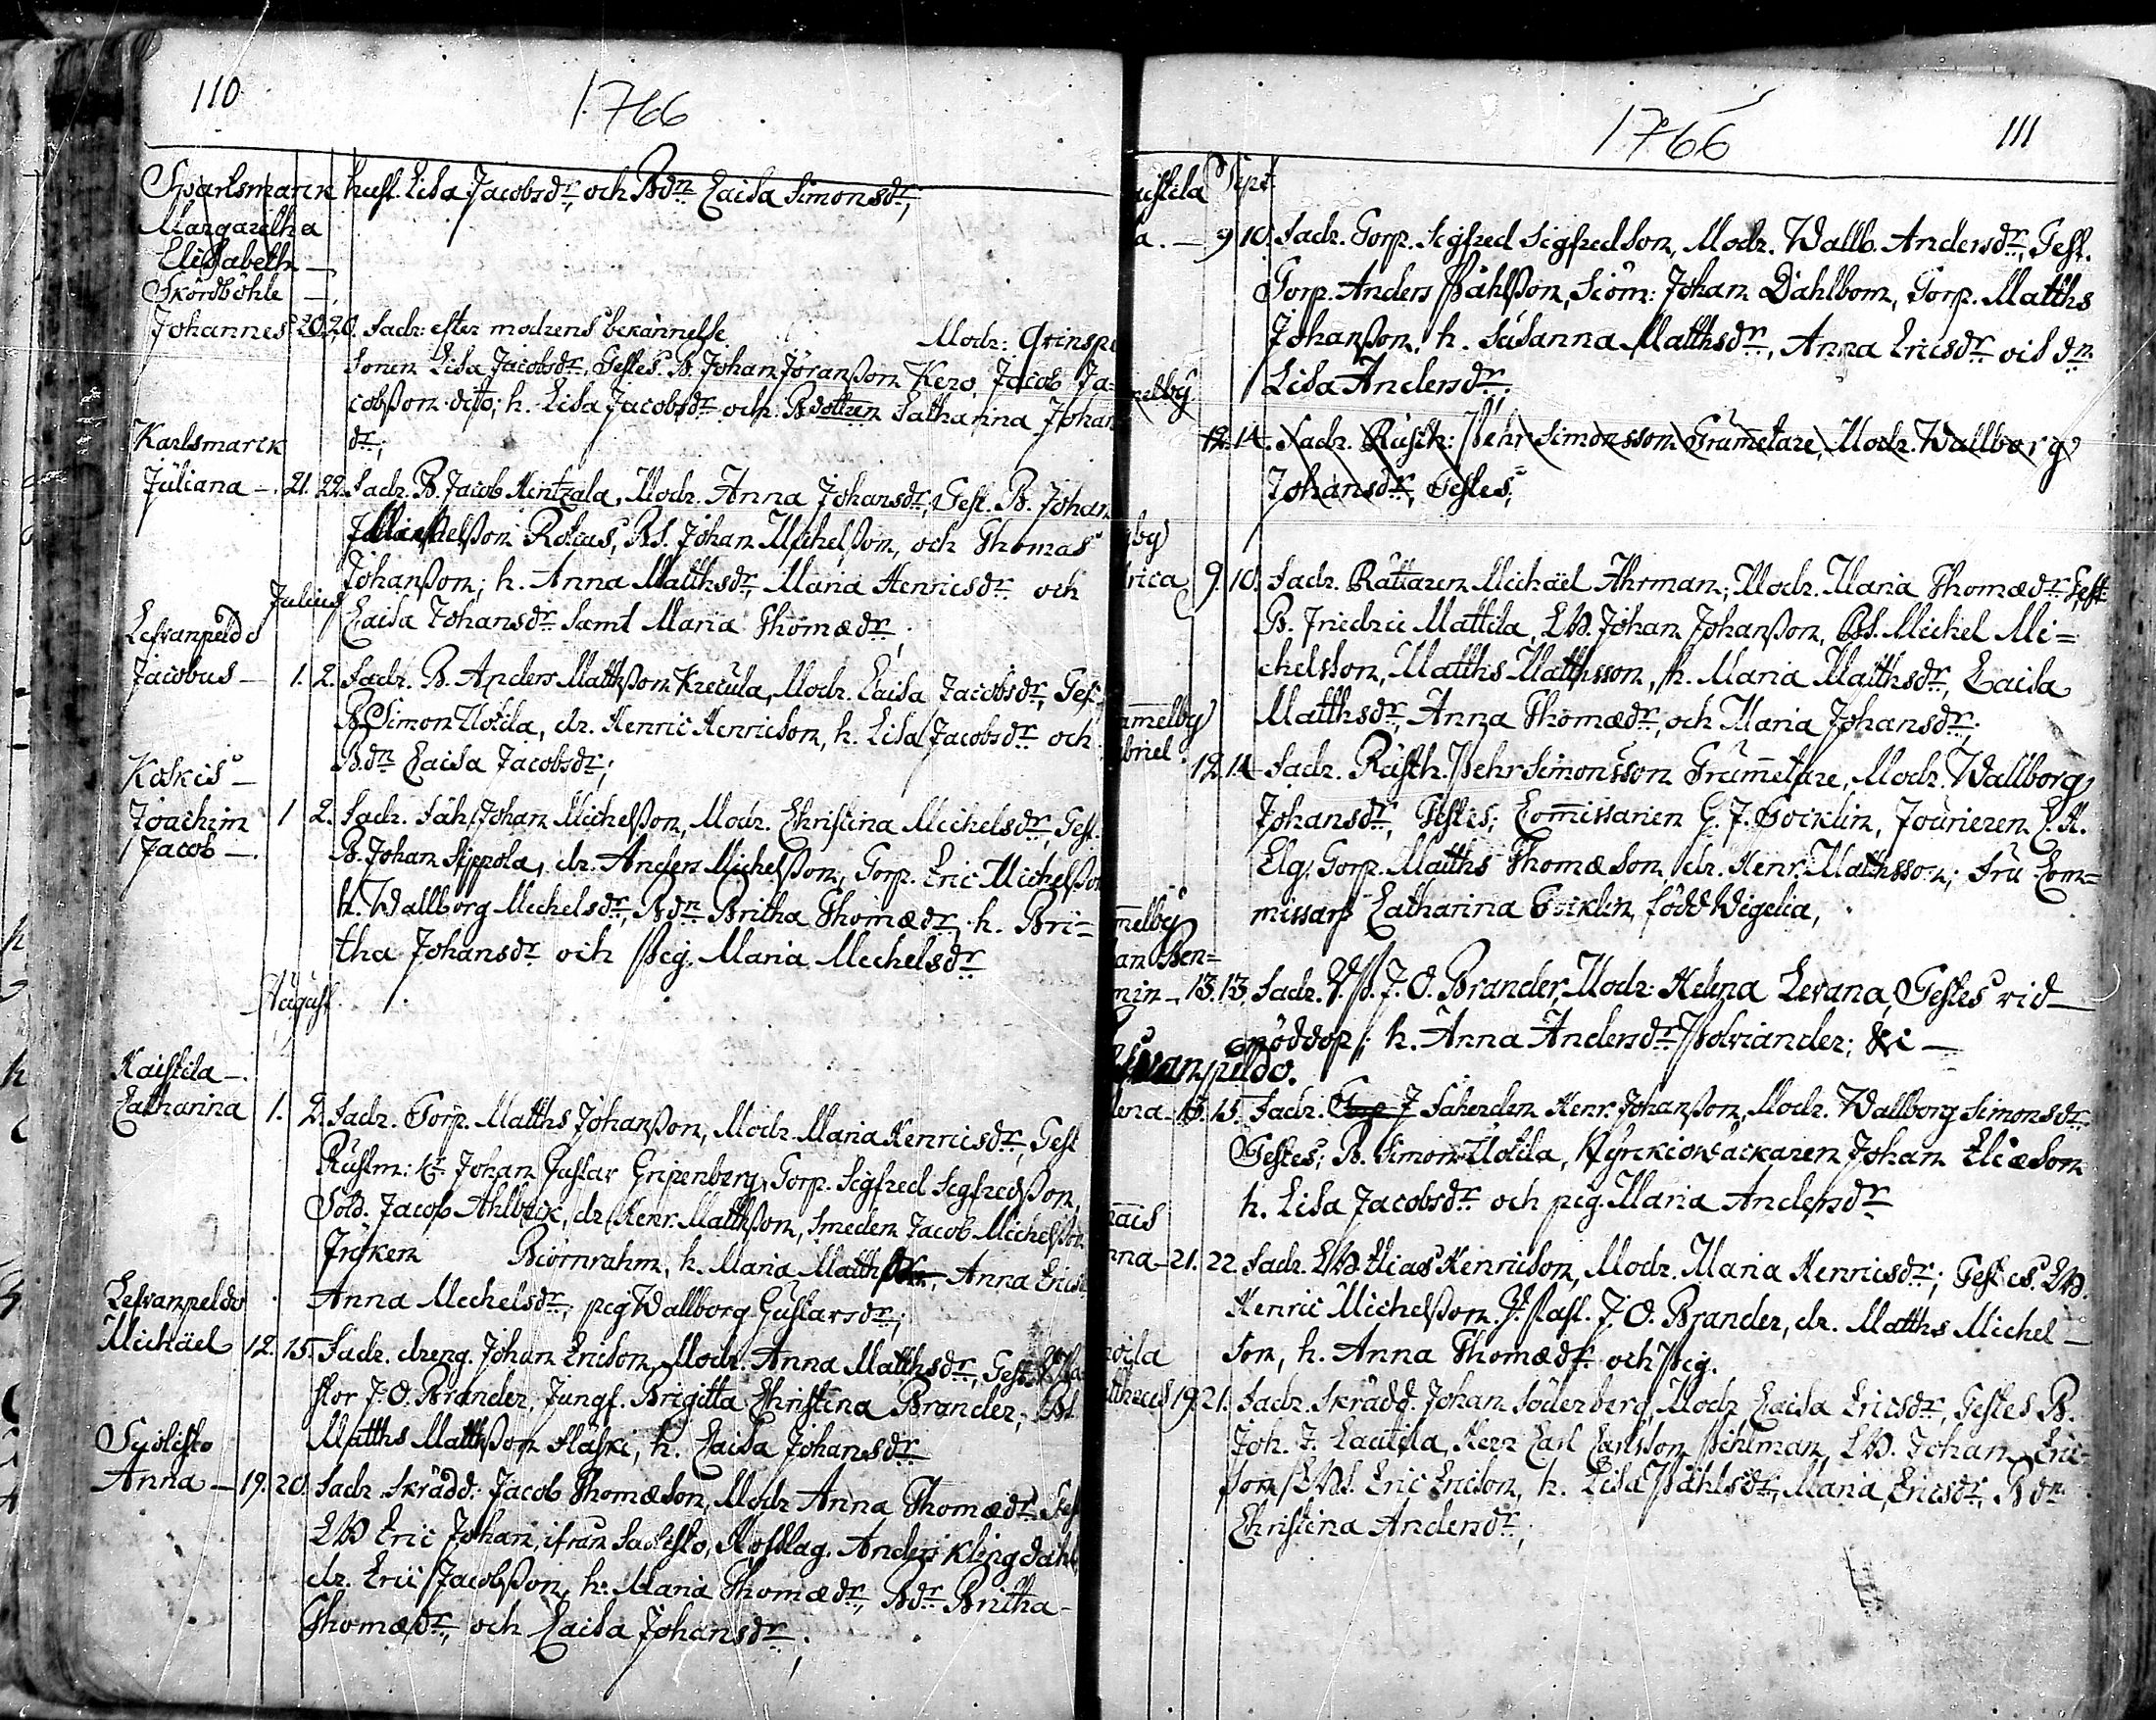 110
1766
Sparlsmarck hust. Lisa Jacobsdr, och Bdn Caisa Simonsdr,
Margaretha
Elisabeth —
Skördböhle —
Johannes 20. 20. Fadr: efter modrens bekännelse Modr: Qvinsp
sonen Lisa Jacobsdr, Testes. B. Johan Jöranßon Kero, Jacob Ja=
cobßon dito; h. Lisa Jacobsdr och Bdottren Catharina Johan
Karlsmarck dr;
Juliana —. 21. 22. Fadr. B. Jacob Hentzala, Modr. Anna Johansdr, Test. B. Johan
Michelßon Rokus, BS. Johan Michelßon, och Thomas
Johanßon; h. Anna Matthsdr, Maria Henricsdr och
Julius
Caisa Johansdr samt Maria Thomædr;
Lefvanpeldo
Jacobus — 1. 2. Fadr. B. Anders Matthßon Krecula, Modr. Caisa Jacobsdr, Test.
B. Simon Uotila, dr. Henric Henricson, h. Lisa Jacobsdr och
Bdn Caisa Jacobsdr;
Koskis —
Joachim 1 2. Fadr. Johan Michelßon, Modr. Christina Michelsdr, Test.
Jacob —. B. Johan Sippola, dr. Anders Michelßon, Torp. Eric Michelßon
h. Wallborg Michelsdr, Bdn Britha Thomædr, h. Bri=
tha Johansdr och Pig. Maria Michelsdr
August.
Kaistila —.
Catharina 1. 2. Fadr. Torp. Matths Johanßon, Modr Maria Henricsdr, Test
Rustm: Hr Johan Gustav Gripenberg, Torp. Sigfred Sigfredßon,
Sold. Jacob Ahlbeck, dr Henr. Matthßon, Smeden Jacob Michelßon
Fröken Biörnrahm, h. Maria Matths, Anna Ericsd
Anna Michelsdr, pig Wallborg Gustavsdr,
Lefvanpeldo
Michäel 12. 15. Fadr. dreng. Johan Ericson, Modr. Anna Matthsdr, Test.
stor J. O. Brander, Jungf. Brigitta Christina Brander, BS.
Matths Matthßon Fläski, h. Caisa Johansdr
Syölisto
Anna — 19. 20. Fadr. Skrädd: Jacob Thomæson, Modr Anna Thomædr, Test
LW Eric Johan, ifrån Saslisto, Anders Klingdahl
dr. Eric Jacobßon, h. Maria Thomædr, Bdr Britha
Thomædr, och Caisa Johansdr;
1766
111
Sept.
9 10. Fadr. Torp. Sigfred Sigfredson, Modr. Wallb. Andersdr, Test.
Torp. Anders Påhlßon, Siöm: Johan Dahlbom, Torp. Matths
Johanßon, h. Susanna Matthsdr, Anna Ericsdr och dn
Lisa Andersdr;
12. 14. Fadr. Rusth: Pehr Simonsson Trummetare, Modr. Wallborg
Johansdr, Testes;
9. 10. Fadr. Rättaren Michäel Ahrman; Modr. Maria Thomædr Test:
B. Friedric Mattila, LW. Johan Johanßon, BS. Michel Mi=
chelsson, Matths Matthsson, h. Maria Matthsdr, Caisa
Matthsdr, Anna Thomædr, och Maria Johansdr;
12. 14 Fadr. Rusth. Pehr Simonsson Trummetare, Modr. Wallborg
Johansdr, Testes; Commissarien G. J. Gocklin, Fourieren C. H.
Elg, Torp. Matths Thomæson, dr. Henr. Matthsson, Fru Com=
missar Catharina Gocklin, född Wigelia,
13. 13. Fadr. V. P. J. O. Brander, Modr: Helena Levana, Testes vid
nöddop; h. Anna Andersdr Polviander; &c —
Lefvanpeldo.
15. Fadr. Faherden Henr. Johanßon, Modr. Wallborg Simonsdr
Testes; B. Simon Uotila, Kyrckiowäckaren Johan Eliæson
h. Lisa Jacobsdr och pig. Maria Andersdr
21. 22. Fadr. LW Elias Henricson, Modr. Maria Henricsdr; Testes. LW.
Henric Michelßon, Past. J. O. Brander, dr. Matths Michel —
son, h. Anna Thomædr och Pig.
19. 21. Fadr. Skrädd. Johan Söderberg, Modr. Caisa Ericsdr, Testes B.
Joh. J. Lautila, Herr Carl Carlsson Pihlman, LW. Johan Eric-
son, LWS. Eric Ericson, h. Lisa Påhlsdr, Maria Ericsdr, Bdn
Christina Andersdr;